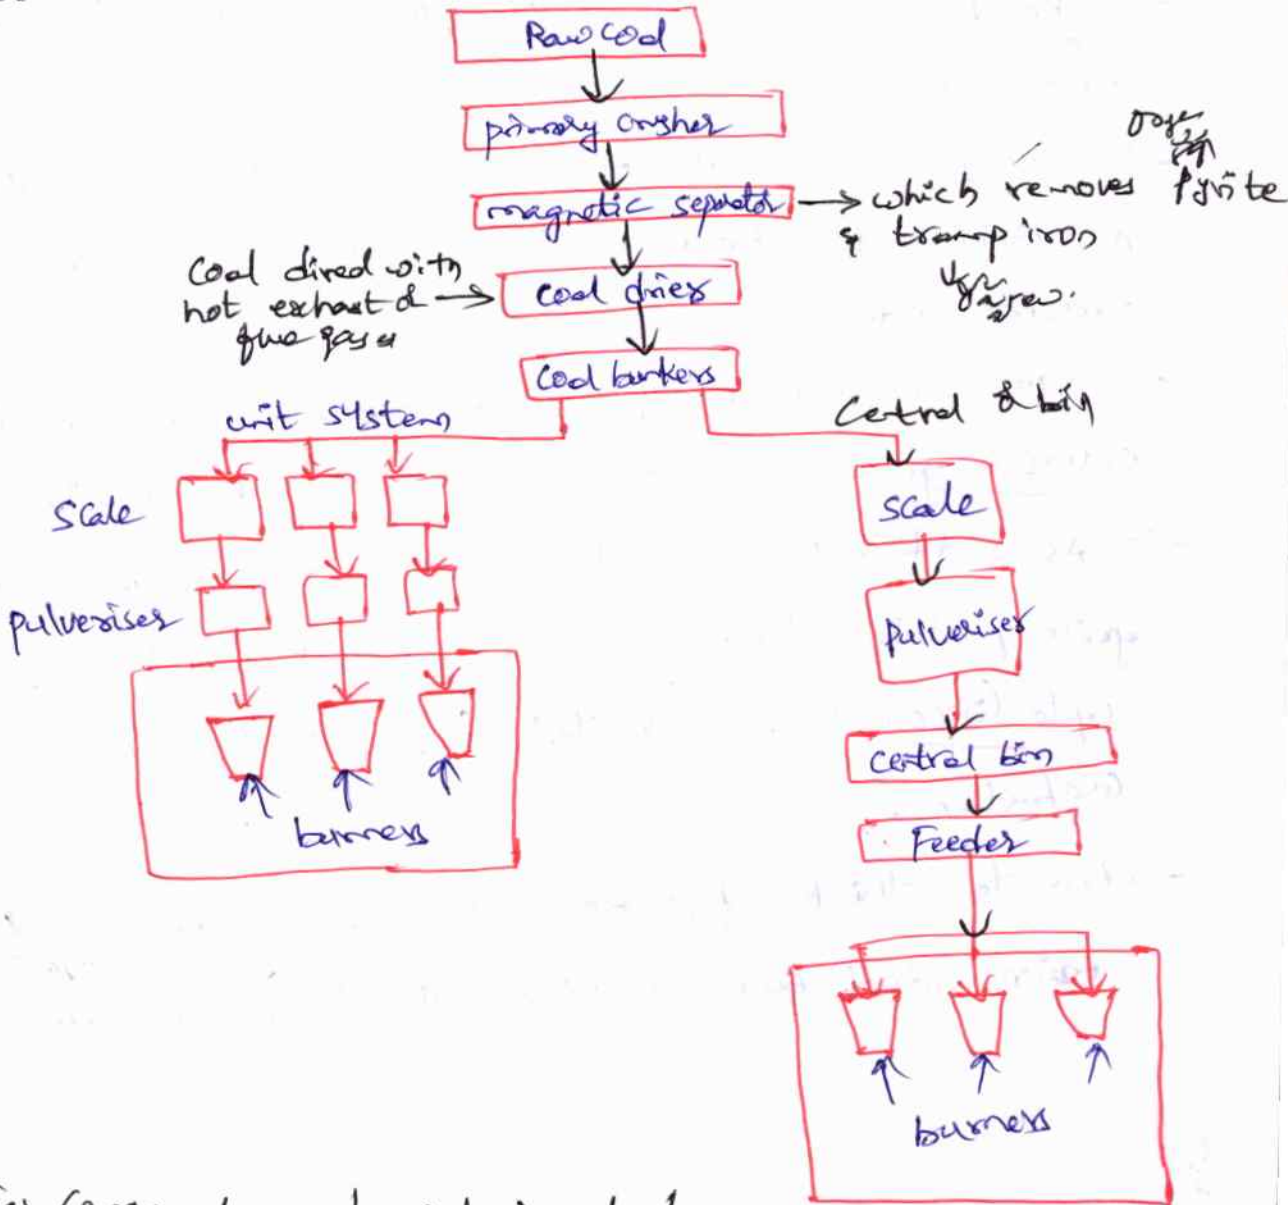 Raw coal
primary crusher
magnetic separator
which removes Pyrite
& tramp iron
Coal dired with
hot exhaust &
flue gases
Coal drier
Coal bunkers
unit system
Central & bin
Scale
Scale
pulveriser
pulveriser
central bin
Feeder
burners
burners